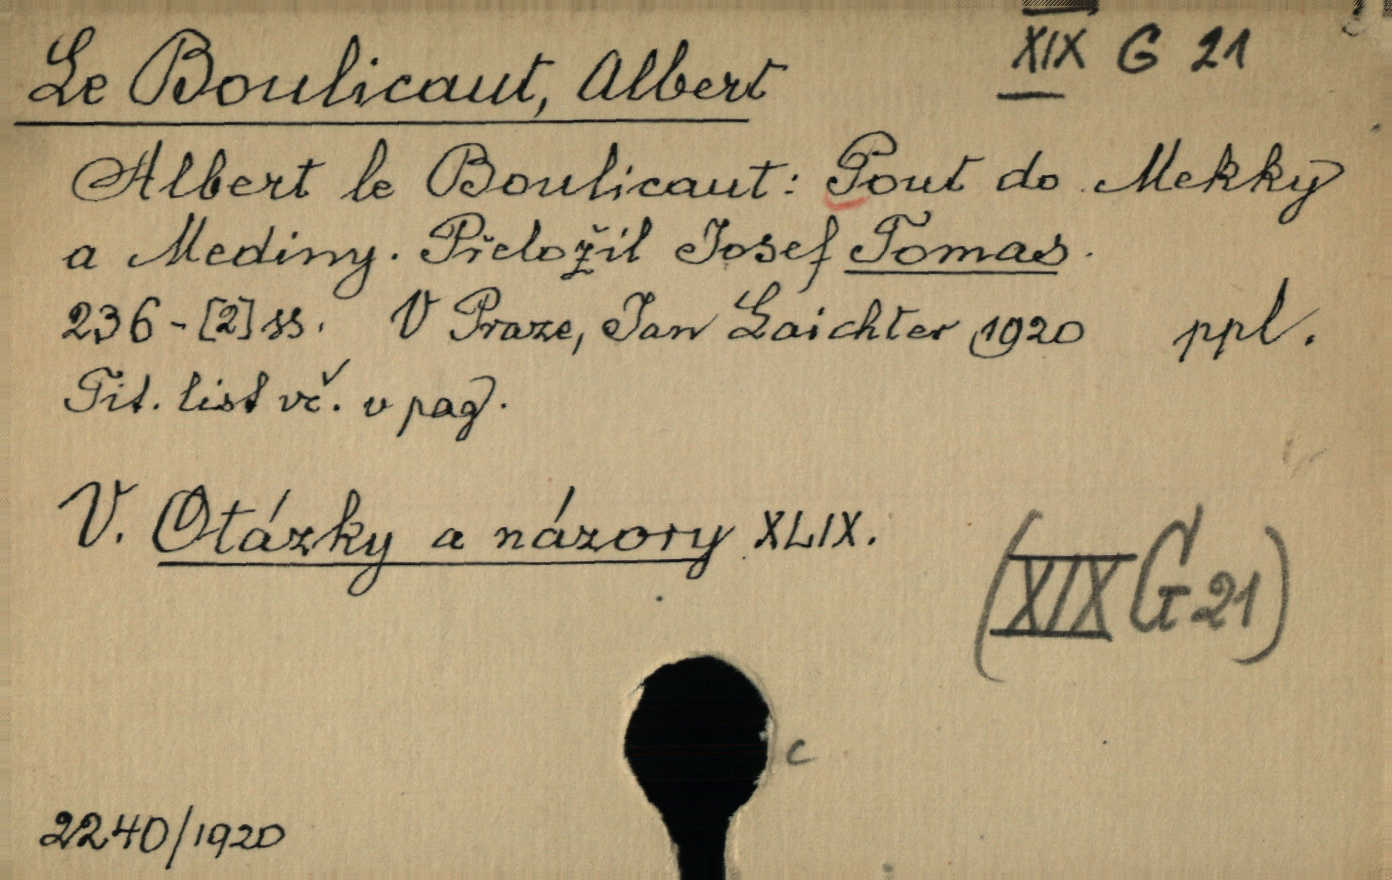 XIX G 21
Le Boulicaut, Albert
Albert le Boulicaut: Pout do Mekky
a Mediny. Přeložil Josef Tomas.
236-[2] ss. V Praze, Jan Laichter 1920 ppl.
Tit. list vč. v pag.
V. Otázky a názory XLIX.
(XIX G 21)
c
2240/1920